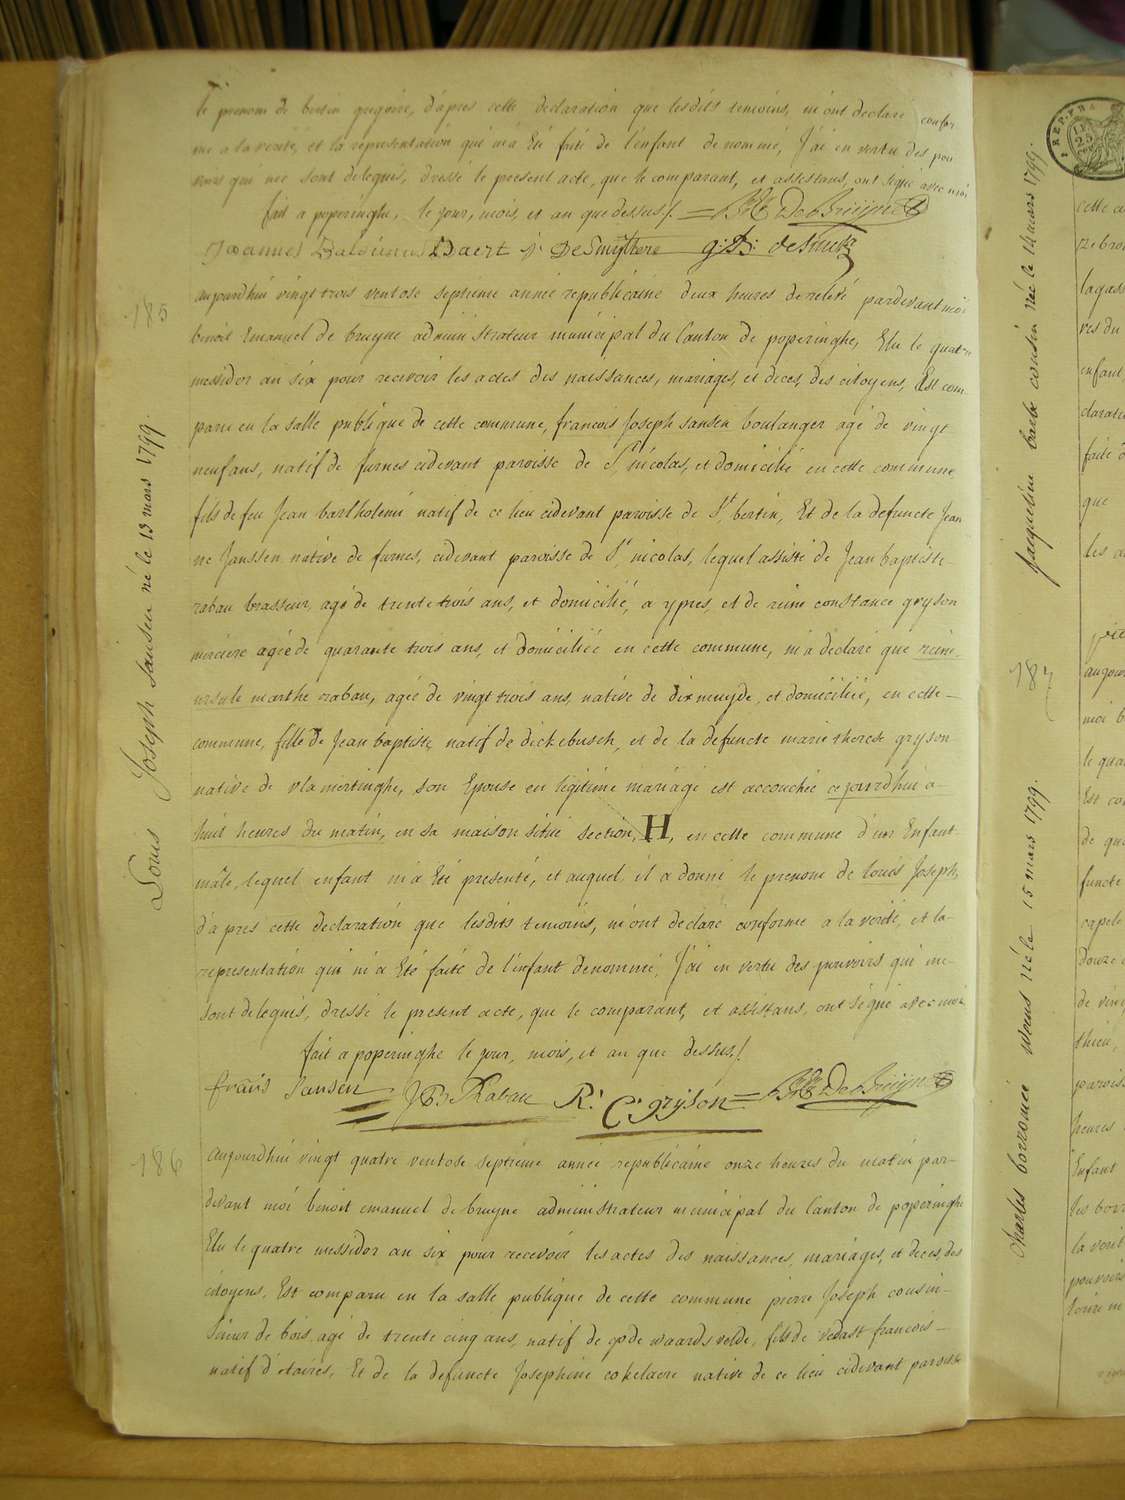 le prenom de bertin gregoire, d'apres cette declaration que lesdits temoins, m'ont declaré confor
me a la verité, et la representation qui m'a Eté faite de l'enfant denommé, J'ai en vertu des pou
voirs qui me sont delegués, dressé le present acte, que le comparant, et assistans, ont signé avec moi
fait a poperinghe, le jour, mois, et an que dessus /. = BE De Bruyne
Joannes Baert j: DeSmyttere g: B: deSmidt
185
aujourdhui vingt trois ventose septieme année republicaine deux heures de relevé pardevant moi
benoit Emanuel de bruyne administrateur municipal du Canton de poperinghe, Elu le quatre
messidor an six pour recevoir les actes des naissances, mariages, et deces, des citoyens, Est com-
paru en la salle publique de cette commune, francois Joseph sansen boulanger agé de vingt
neuf ans, natif de furnes cidevant paroisse de St. nicolas, et domicilié en cette commune,
fils de feu Jean bartholemi natif de ce lieu cidevant paroisse de St. bertin, Et de la defuncte Jean
ne Janssen native de furnes, cidevant paroisse de St. nicolas, lequel assisté de Jean baptiste-
rabau brasseur, agé de trente trois ans, et domicilié, a ypres, et de reine constance gryson
merciere agée de quarante trois ans, et domiciliée en cette commune, m'a declaré que reine,
ursule marthe rabau, agée de vingt trois ans, native de dixmuyde, et domiciliée, en cette-
commune, fille de Jean baptiste, natif de dickebusch, et de la defuncte marie therese gryson
native de vlamertinghe, son Epouse en legitime mariage est accouchée cejourdhui a-
huit heures du matin, en sa maison situé section, H, en cette commune d'un Enfant-
mâle, lequel enfant m'a Eté presenté, et auquel, il a donné le prenom de louis Joseph,
d'apres cette declaration que lesdits temoins, m'ont declaré conforme a la verité, et la-
representation qui m'a Eté faite de l'enfant denommé, J'ai en vertu des pouvoirs qui me-
sont delegués, dressé le present acte, que le comparant, et assistans, ont signé avec moi
fait a poperinghe le jour, mois, et an que dessus /.
francis Sansen J B Rabau R: C: gryson = BE De Bruyne
186
aujourdhui vingt quatre ventose septieme année republicaine onze heures du matin par-
devant moi benoit emanuel de bruyne administrateur municipal du Canton de poperinghe
Elu le quatre messidor an six pour recevoir les actes des naissances, mariages, et deces, des
citoyens, Est comparu en la salle publique de cette commune pierre Joseph cousin-
scieur de bois, agé de trente cinq ans, natif de gode waards velde, fils de vedast francois-
natif d'etaires, Et de la defuncte Josephine cokelaere native de ce lieu cidevant paroisse
Louis Joseph Sansen né le 13 mars 1799.
Jacqueline barbe cousin née le 14 mars 1799.
187
Charles borromée né le 15 mars 1799.
REP. FRA
cette a
lagas
enfant
faite d
que
les a
aujour
moi b
le qua
Est co
de qu
functe
capele
douze
de vin
thieu,
parois
heures
Enfant
les borr
la verit
pouvoirs